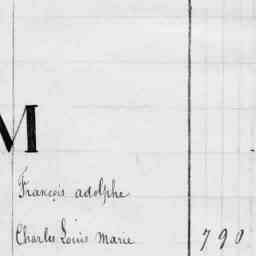 M
François adolphe
Charles Louis Marie 790